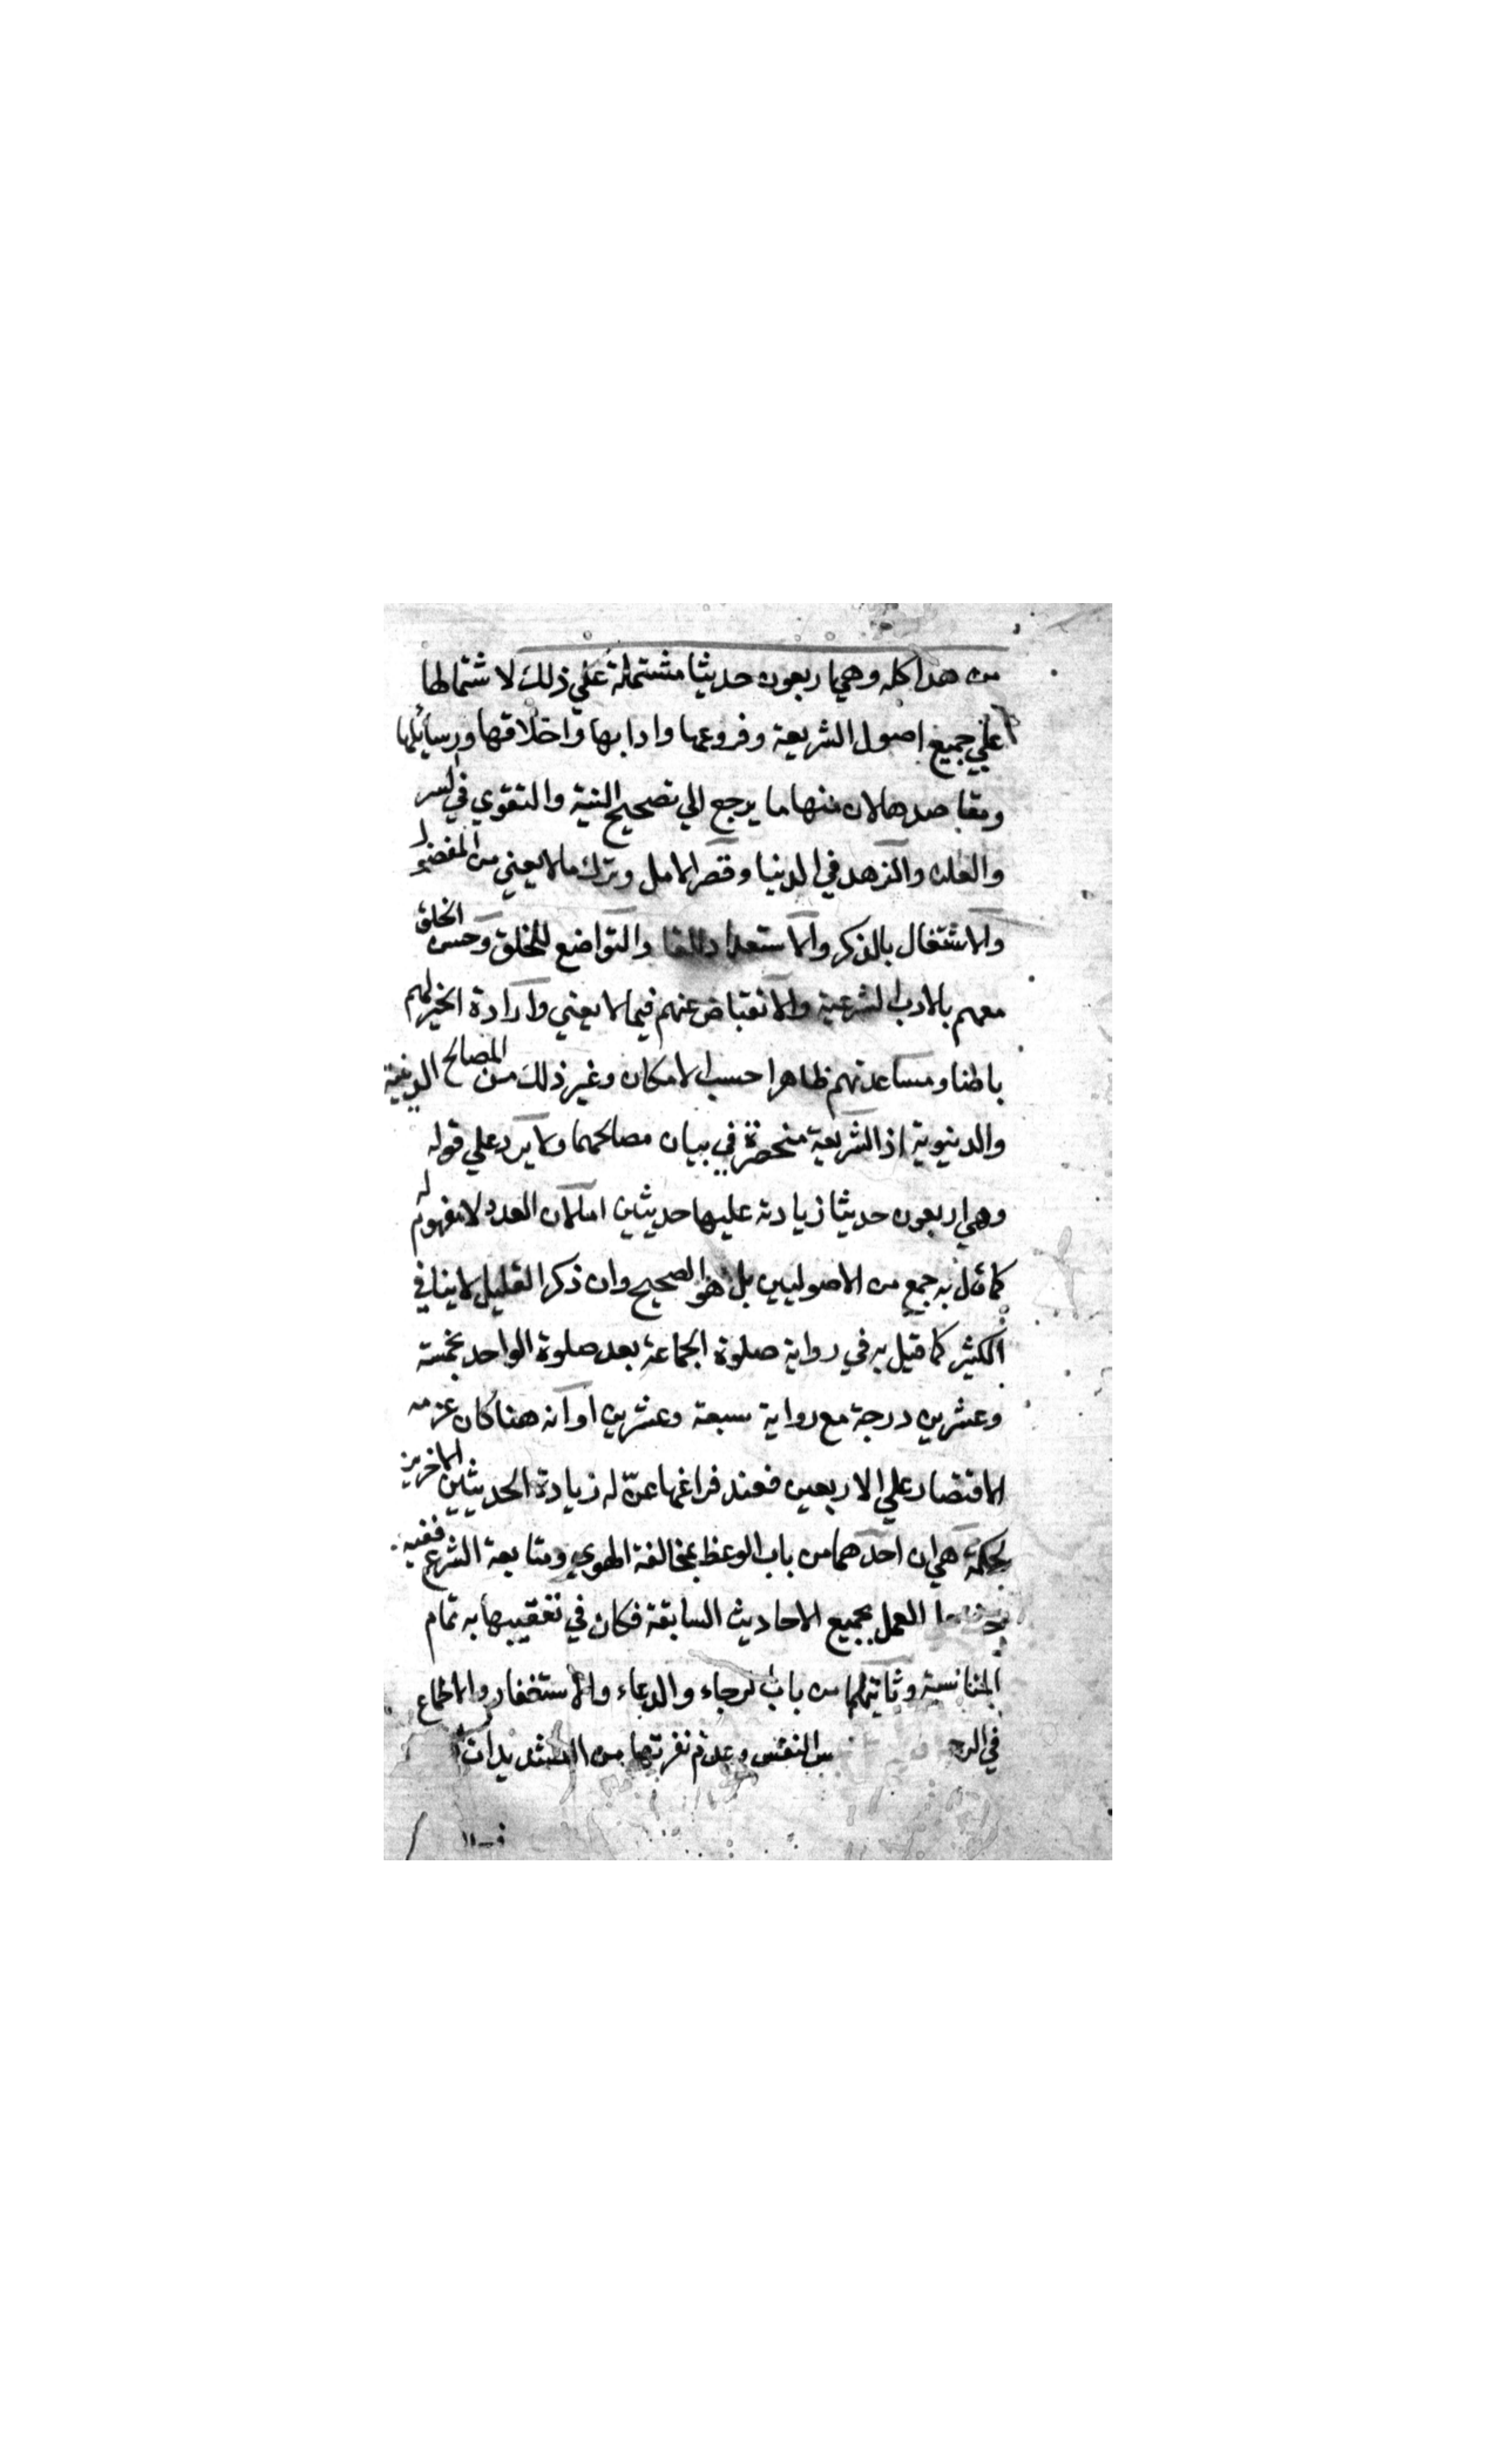 من هذا كله وهي اربعون حديثا مشتملة علي ذلك لاشتمالها
علي جميع اصول الشريعة وفروعها وادابها واخلاقها ورسايلها
ومقاصدها لان منها ما يرجع الي تصحيح النية والتقوي في السر
والعلن والزهد في الدنيا وقصر الامل وترك ما لا يعني من الفضول
والاشتغال بالذكر والاستعداد للقا والتواضع للخلق وحسن الخلق
معهم بالادب الشرعية والانقباض عنهم فيما لا يعني وارادة الخير لهم
باطنا ومساعدتهم ظاهرا حسب الامكان وغير ذلك من المصالح الدينية
والدنيوية اذ الشريعة منحصرة في بيان مصالحهما ولا يرد علي قوله
وهي اربعون حديثا زيادته عليها حديثين اما لان العدد لا مفهوم له
كما قال به جمع من الاصوليين بل هو الصحيح وان ذكر القليل لا ينافي
الكثير كما قيل به في رواية صلوة الجماعة بعد صلوة الواحد بخمسة
وعشرين درجة مع رواية سبعة وعشرين او انه هنا كان عزمه
الاقتصار علي الاربعين فعند فراغها عنّ له زيادة الحديثين الاخرين
لحكمة هي ان احدهما من باب الوعظ بمخالفة الهوي ومتابعة الشرع ففيه
العمل بجميع الاحاديث السابقة فكان في تعقيبها به تمام
المناسبة وثانيهما من باب الرجاء والدعاء والاستغفار والاطماع
في النفس وعدم نفرتها من التشديدات